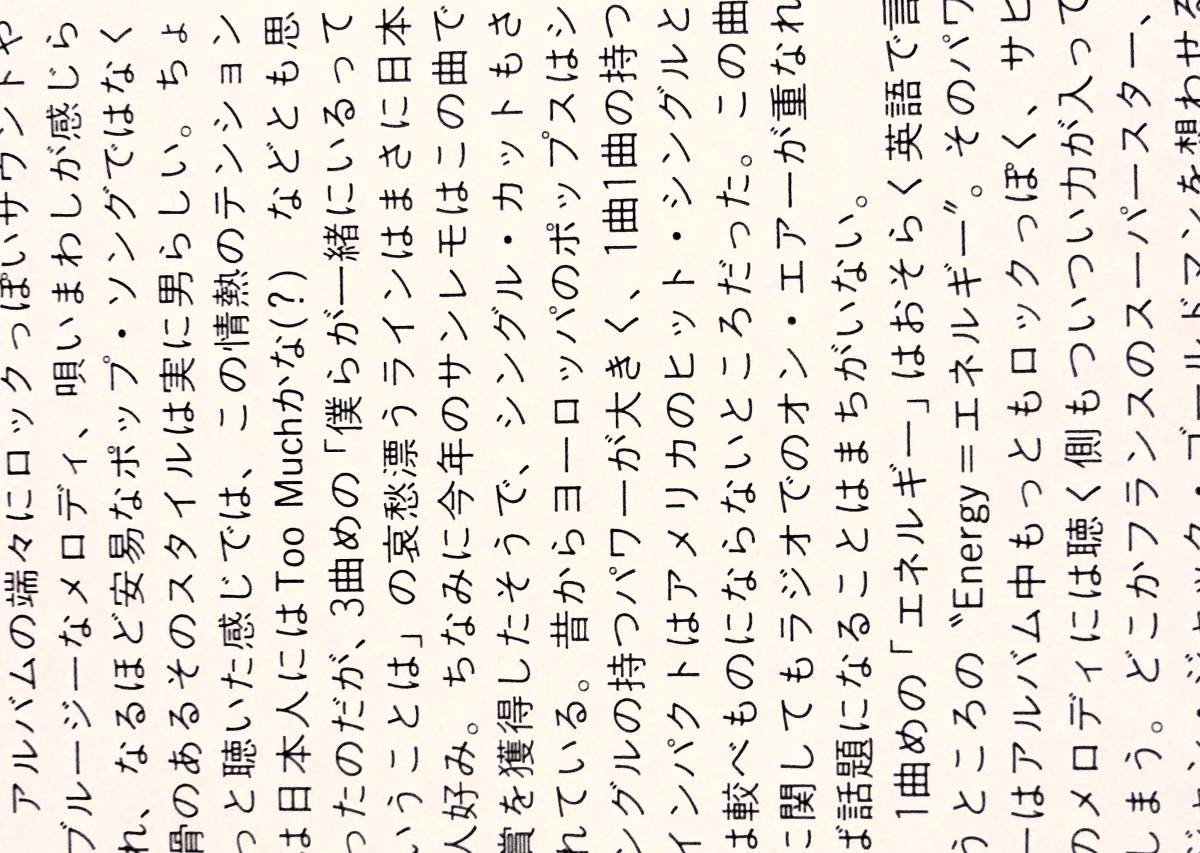 アルバムの端々にロックっぽいサウンドや
ブルージーなメロディ、唄いまわしが感じら
れ、なるほど安易なポップ・ソングではなく
骨のあるそのスタイルは実に男らしい。ちょ
っと聴いた感じでは、この情熱のテンション
は日本人にはToo Muchかな(?) などとも思
ったのだが、3曲めの「僕らが一緒にいるって
いうことは」の哀愁漂うラインはまさに日本
人好み。ちなみに今年のサンレモはこの曲で
賞を獲得したそうで、シングル・カットもさ
れている。昔からヨーロッパのポップスはシ
ングルの持つパワーが大きく、1曲1曲の持つ
インパクトはアメリカのヒット・シングルと
は較べものにならないところだった。この曲
に関してもラジオでのオン・エアーが重なれ
ば話題になることはまちがいない。
1曲めの「エネルギー」はおそらく英語で言
うところの〝Energy＝エネルギー〟。そのパワ
ーはアルバム中もっともロックっぽく、サビ
のメロディには聴く側もついつい力が入って
しまう。どこかフランスのスーパースター、
ジャン・ジャック・ゴールドマンを想わせる